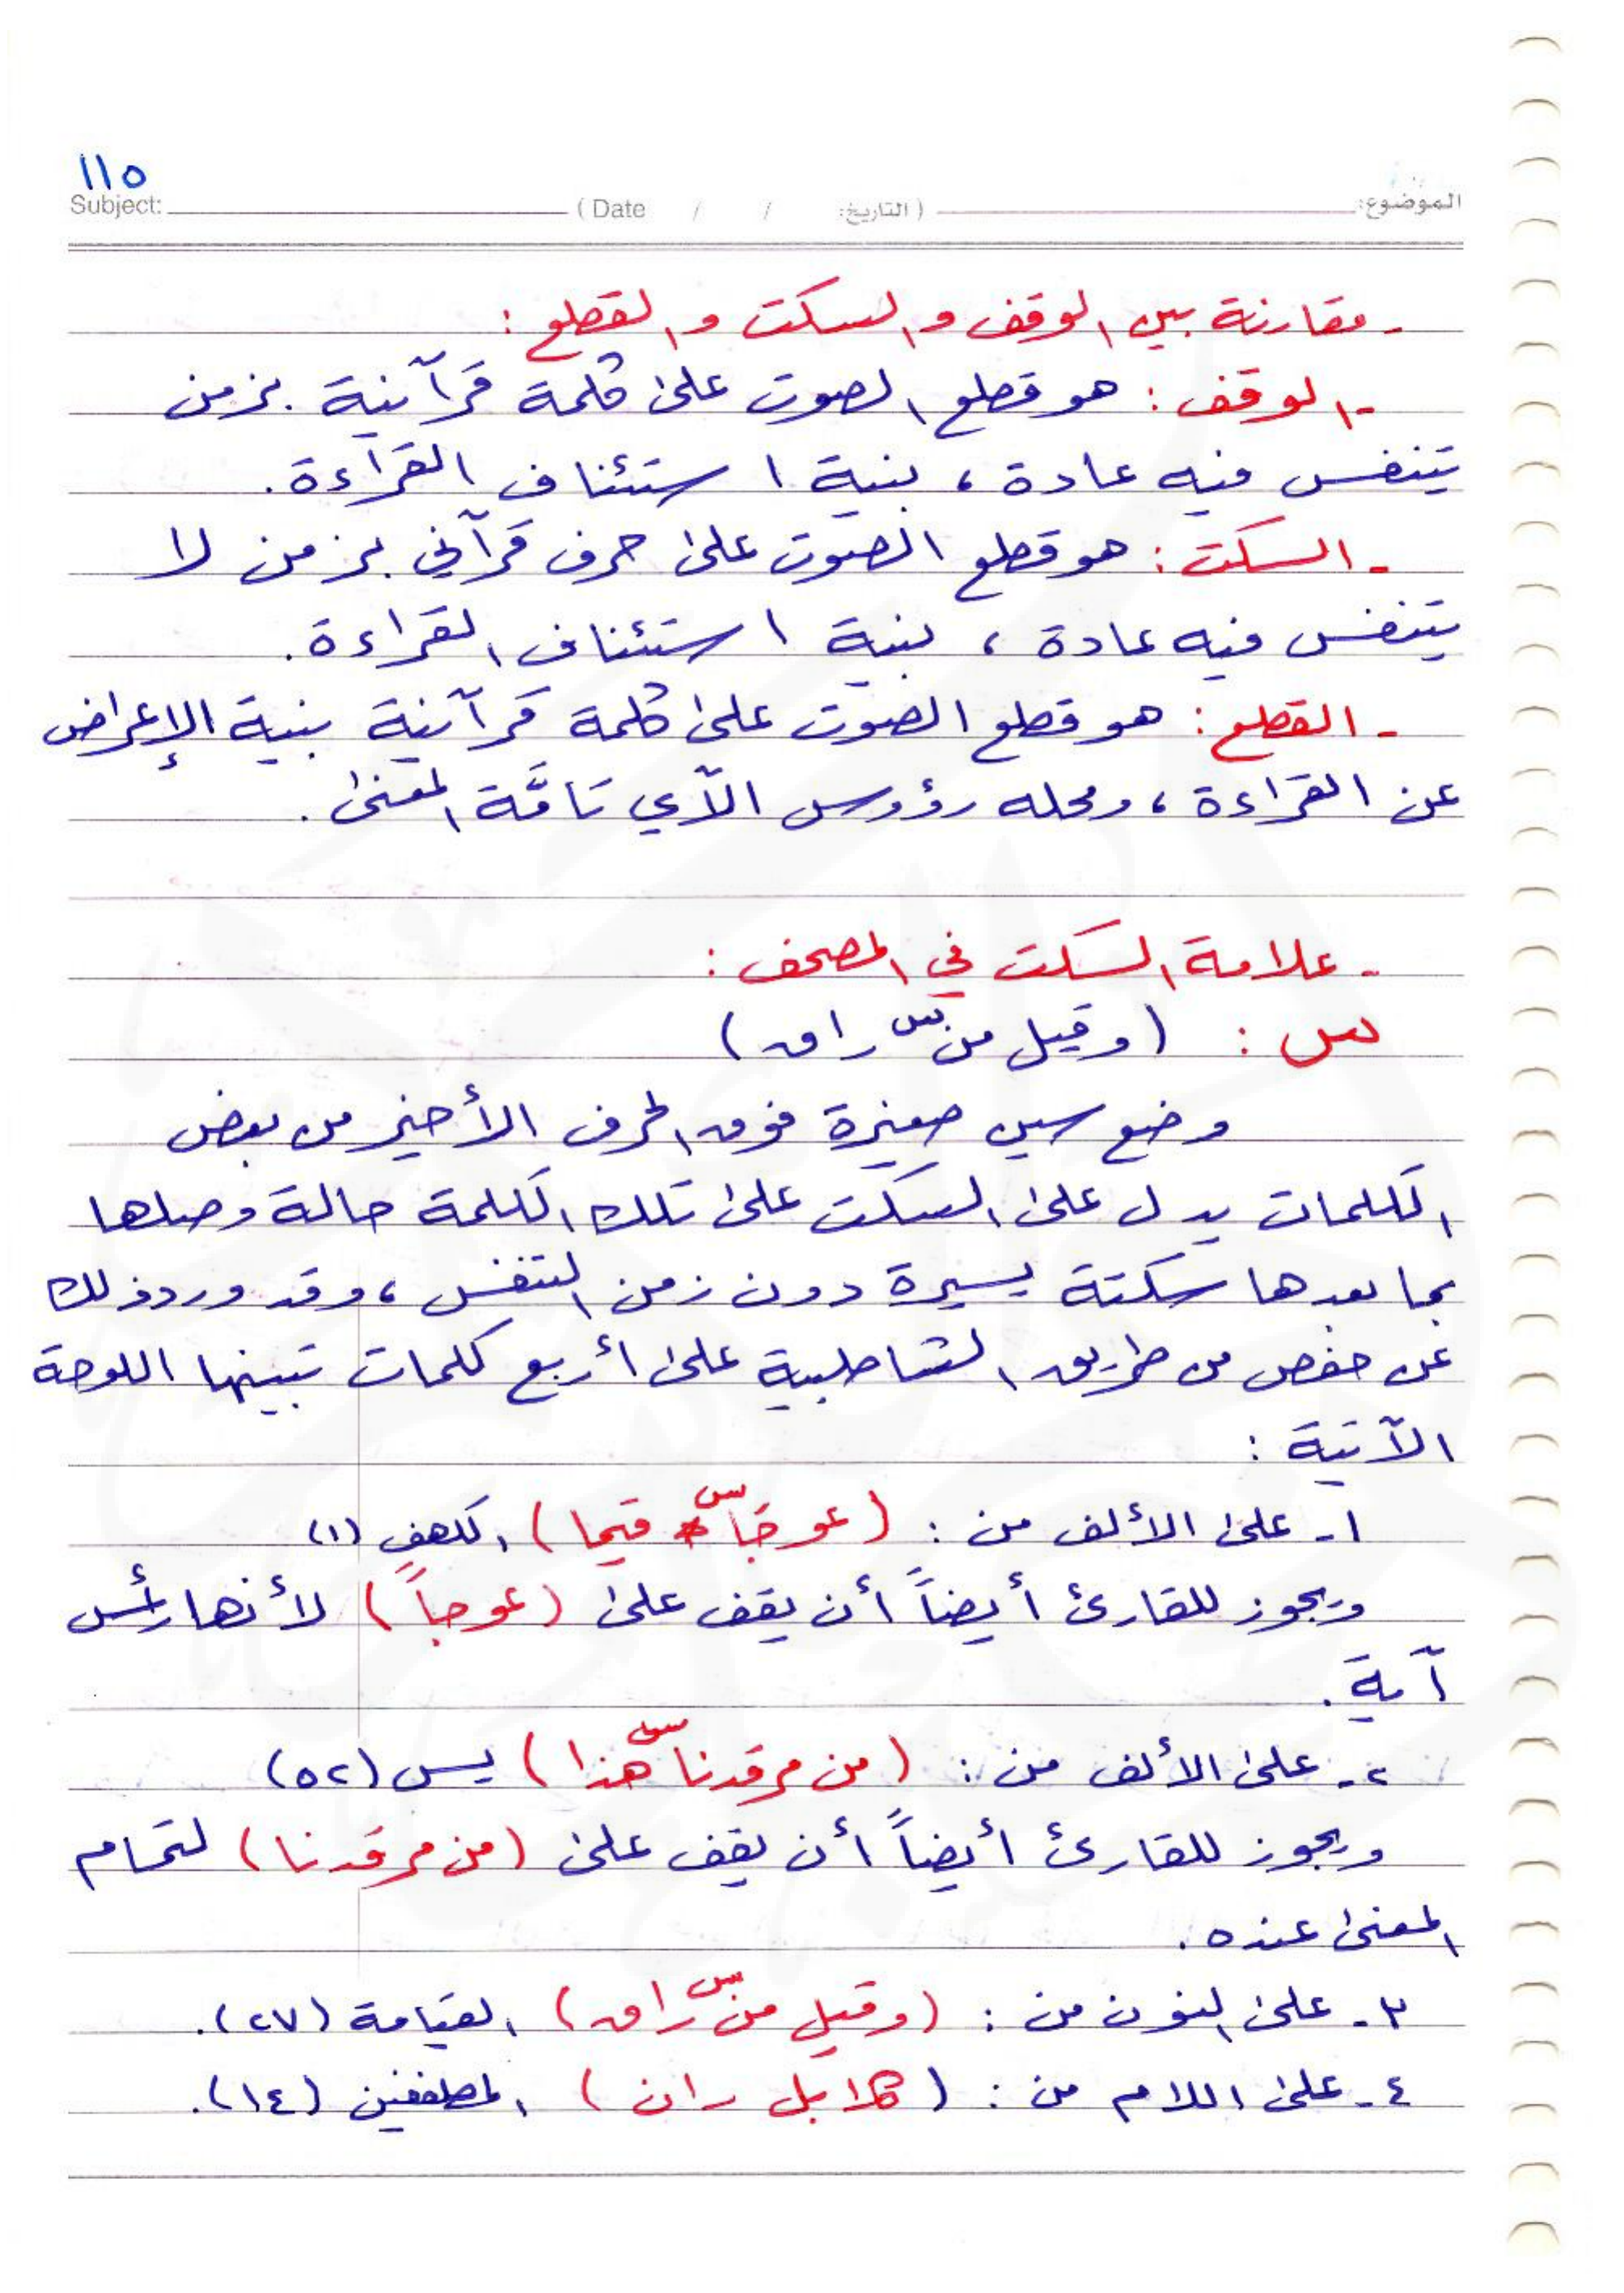 ١١٥
Subject: (Date / / التاريخ:) الموضوع:
- مقارنة بين الوقف و السكت و القطع :
- الوقف : هو قطع الصوت على كلمة قرآنية بزمن
يتنفس فيه عادة ، بنية استئناف القرآءة .
- السكت : هو قطع الصوت على حرف قرآني بزمن لا
يتنفس فيه عادة ، بنية استئناف القراءة .
- القطع : هو قطع الصوت على كلمة قرآنية بنية الإعراض
عن القراءة ، ومحله رؤوس الآي تامَّة المعنى .
- علامة السكت في المصحف :
س : (وقيل منْ س راق)
وضع سين صغيرة فوق الحرف الأخير من بعض
الكلمات يدل على السكت على تلك الكلمة حالة وصلها
بما بعدها سكتة يسيرة دون زمن التنفس ، وقد ورد ذلك
عن حفص من طريق الشاطبية على أربع كلمات تبينها اللوحة
الآتية :
١- على الألف من : (عوجَا س قيما) الكهف (١)
ويجوز للقارئ أيضاً أن يقف على (عوجاً) لأنها رأس
آية .
٢- على الألف من : (من مرقدنا س هذا) يس (٥٢)
ويجوز للقارئ أيضاً أن يقف على (من مرقدنا) لتمام
المعنى عنده .
٣- على النون من : (وقيل من س راق) القيامة (٢٧).
٤- على اللام من : (كلا بل ران) المطففين (١٤).